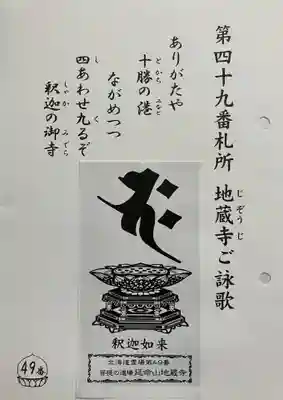 第四十九番札所 地蔵寺ご詠歌
じぞうじ
ありがたや
十勝の港
とかち みなと
ながめつつ
四あわせ九るぞ
し く
釈迦の御寺
しゃか みでら
釈迦如来
北海道霊場第49番
菩提の道場 延命山地蔵寺
49番